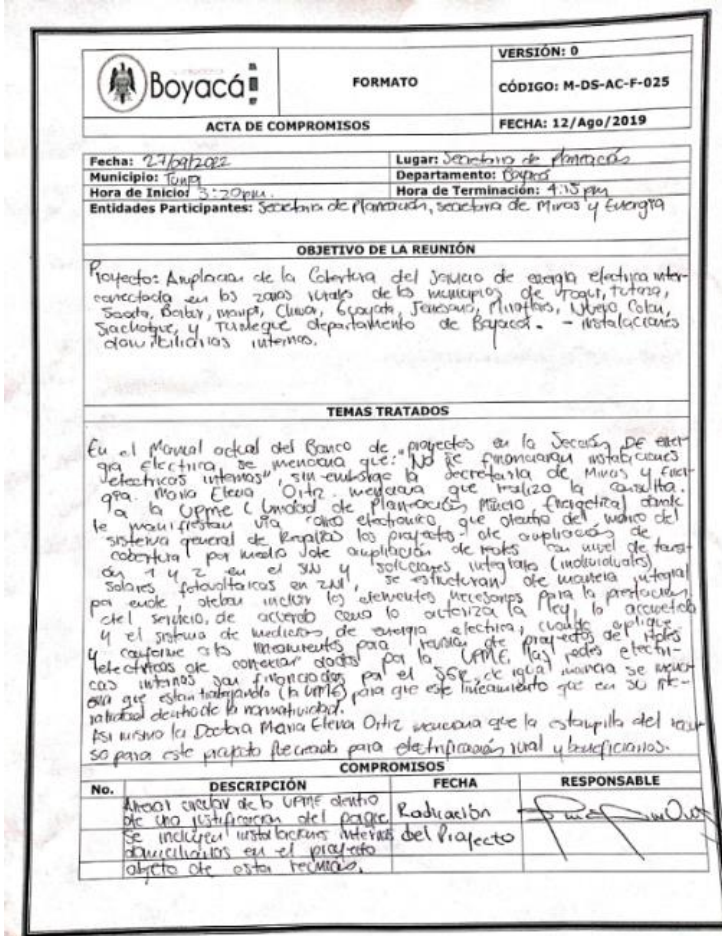 Boyacá
FORMATO
VERSIÓN: 0
CÓDIGO: M-DS-AC-F-025
ACTA DE COMPROMISOS
FECHA: 12/Ago/2019
Fecha: 27/09/2022
Lugar: Secretaria de Planeación
Municipio: Tunja
Departamento: Boyacá
Hora de Inicio: 3:20pm.
Hora de Terminación: 4:15 pm
Entidades Participantes: Secretaria de Planeación, secretaria de Minas y Energia
OBJETIVO DE LA REUNIÓN
Proyecto: Ampliacion de la Cobertura del servicio de energia electrica inter-
conectada en las zonas rurales de los municipios de Togui, Tutaza,
Socota, Berbeo, Maripi, Chivor, Jenesano, Miraflores, Nuevo Colon,
Siachoque, y Turmeque departamento de Boyacá. - instalaciones
domiciliarias internas.
TEMAS TRATADOS
En el Manual actual del Banco de proyectos en la Sección DE ener-
gia electrica, se menciona que: "No se financiaran instalaciones
electricas internas", sin embargo la secretaria de Minas y Ener-
gia. Maria Elena Ortiz. menciona que realizo la consulta.
a la Upme (Unidad de Planeación Minero Energetica) donde
le manifiestan via correo electronico que dentro del marco del
sistema general de Regalias los proyectos de ampliación de
cobertura por medio de ampliación de redes con nivel de tensi-
ón 1 y 2 en el SIN y soluciones integrales (individuales)
solares fotovoltaicas en ZNI, se estructuran de manera integral
por ende, deben incluir los elementos necesarios para la prestación
del servicio, de acuerdo como lo autoriza la ley, la acometida
y el sistema de medición de energia electrica, cuando aplique
y conforme a los lineamientos para revision de proyectos de redes
electricas de dados por la UPME, las redes electri-
cas internas son financiadas por el SGR, de igual manera se menci-
ona que estan trabajando (la UPME) para que este lineamiento que en su
dentro de la normatividad.
Asi mismo la Doctora Maria Elena Ortiz menciona que la estampilla del recur-
so para este proyecto para electrificación rural y beneficiarios.
COMPROMISOS
No.
DESCRIPCIÓN
FECHA
RESPONSABLE
Anexar circular de la UPME dentro
de una justificacion del porque
se incluyen instalaciones internas
domiciliarias en el proyecto
objeto de esta reunión.
Radicación
del Proyecto